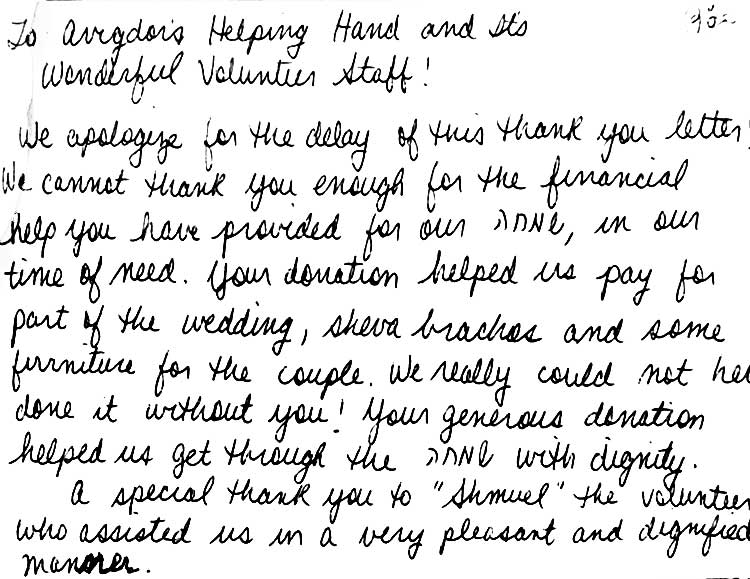 To Avigdor's Helping Hand and It's
Wonderful Volunteer Staff!
We apologize for the delay of this thank you letter!
We cannot thank you enough for the financial
help you have provided for our שמחה, in our
time of need. Your donation helped us pay for
part of the wedding, sheva brachos and some
furniture for the couple. We really could not hav
done it without you! Your generous donation
helped us get through the שמחה with dignity.
A special thank you to "Shmuel" the volunteer
who assisted us in a very pleasant and dignified
manner.